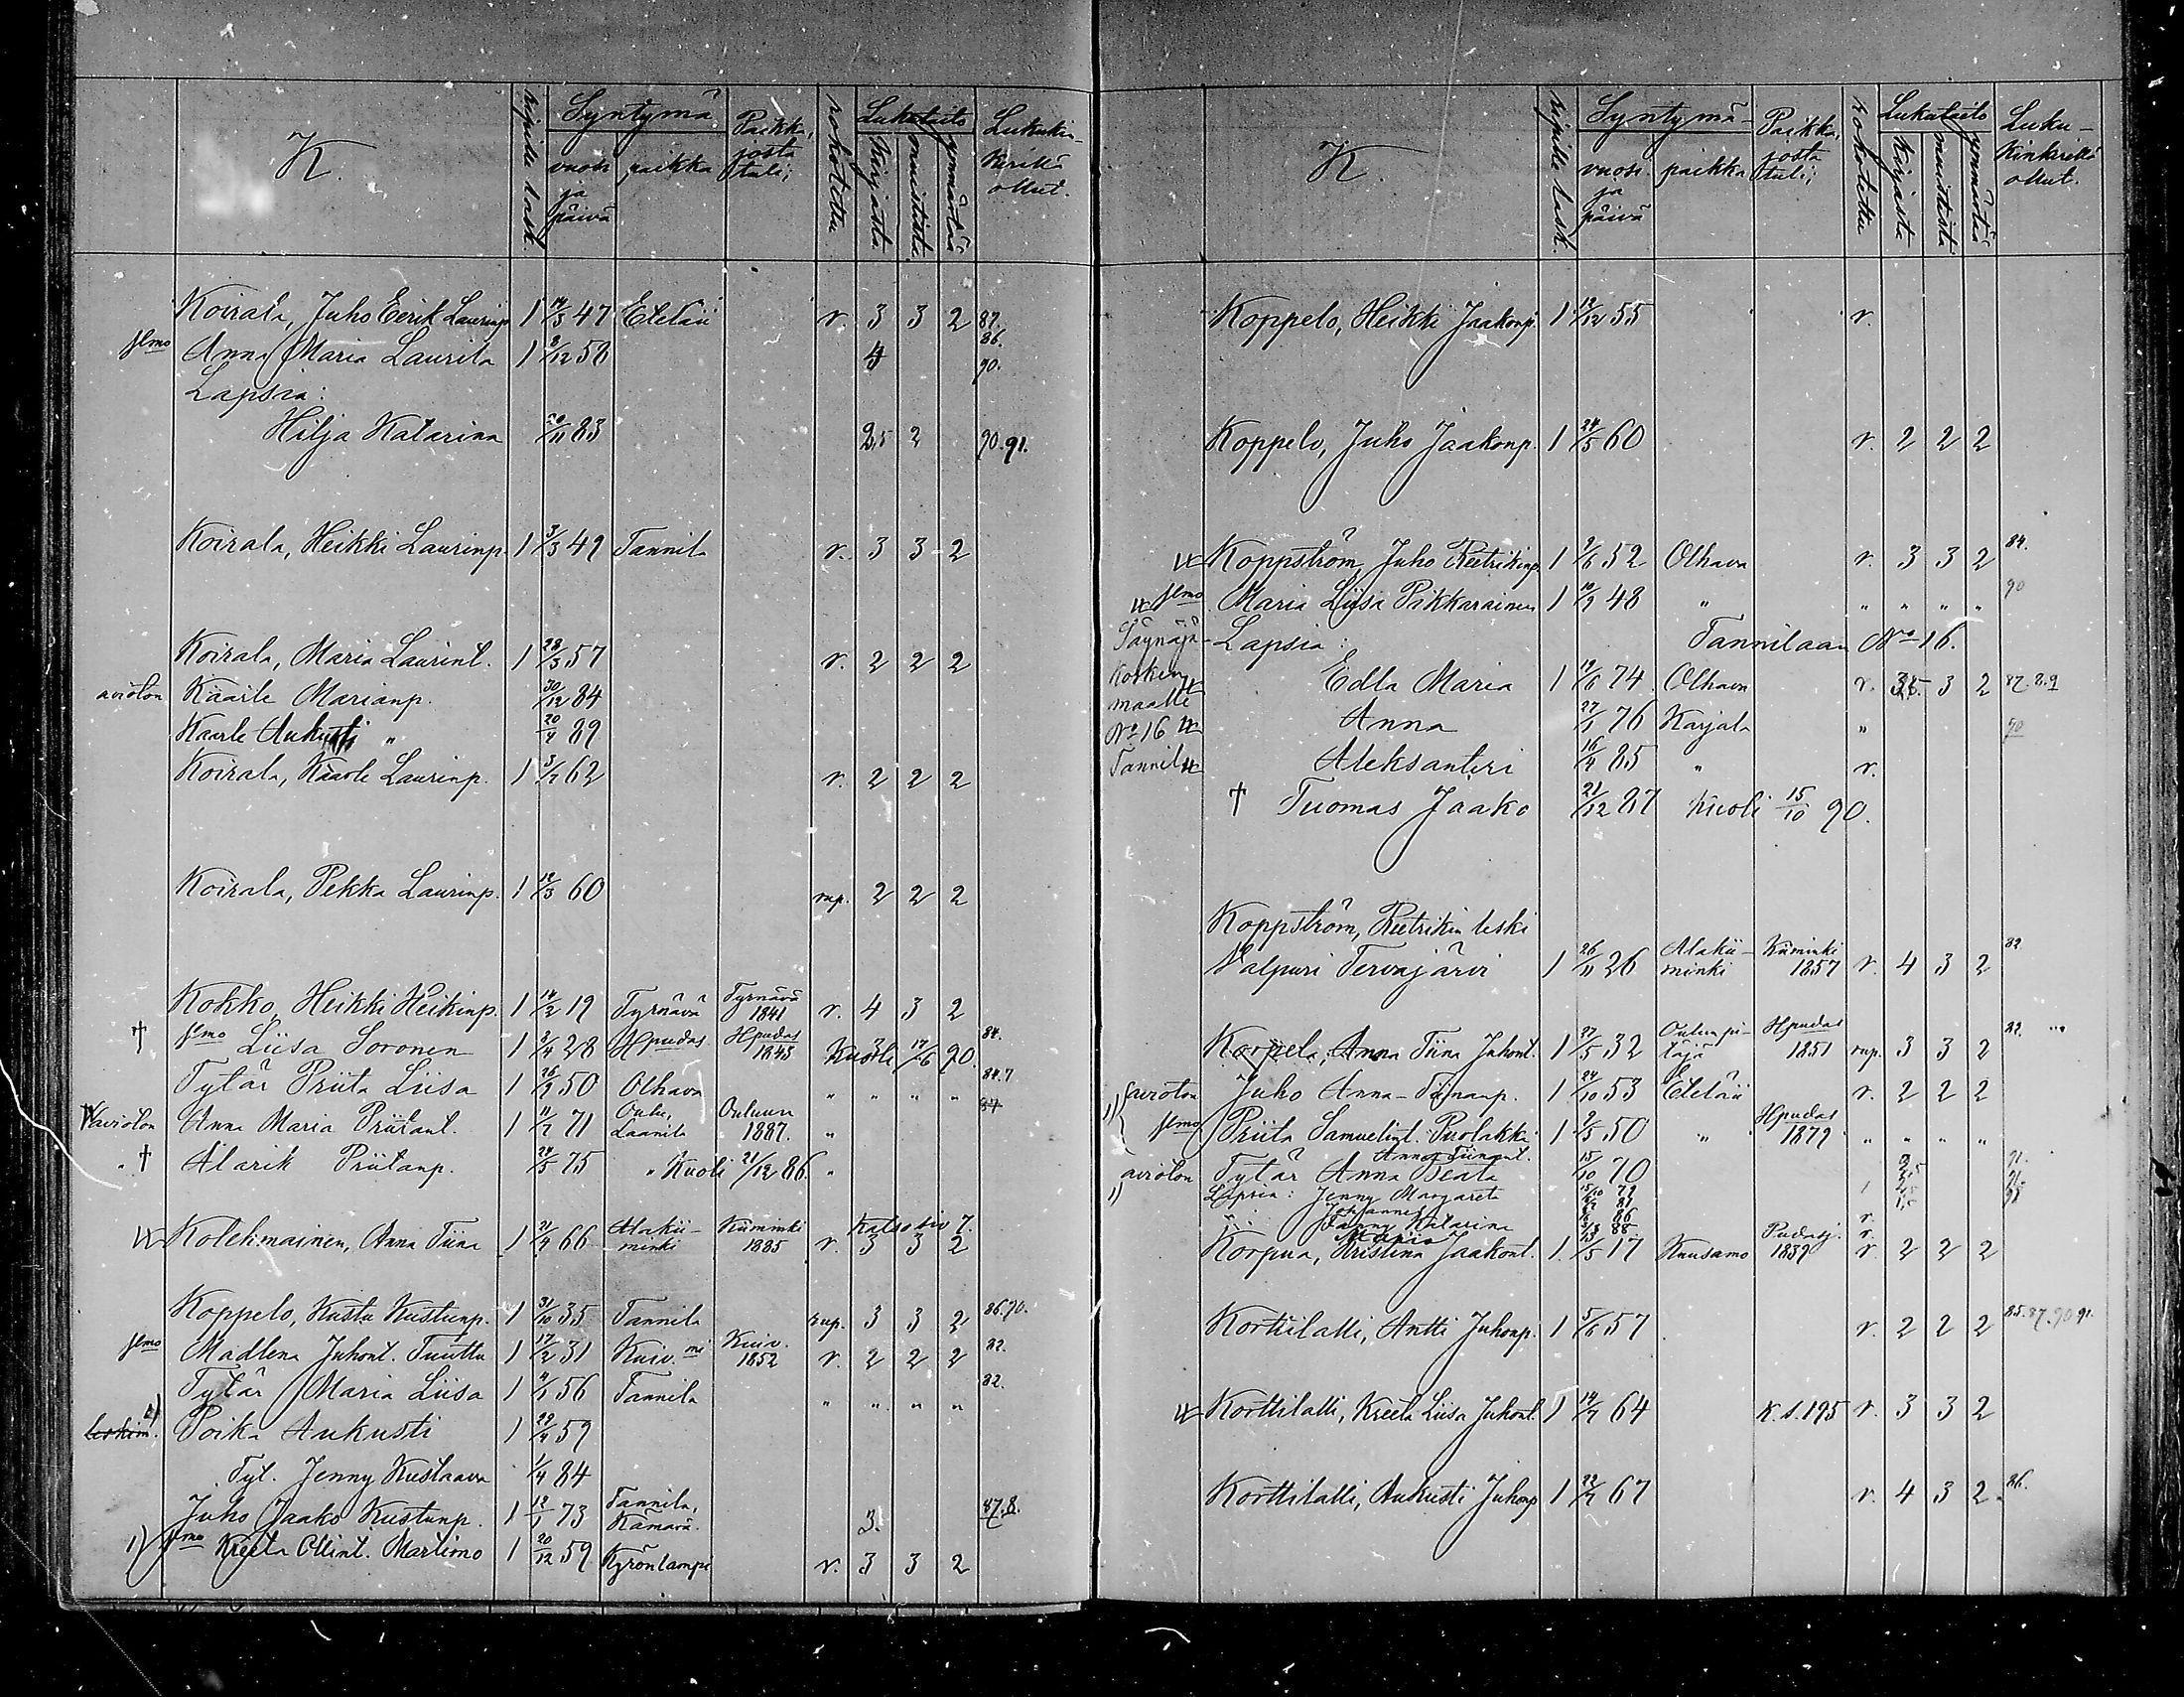 K.
ripille lask.
Syntymä
vuosi ja päivä
paikka
Paikka, josta tuli;
rokotettu
Lukutaito
kirjasta
muistista
ymmärtää
Lukukinkerillä ollut.
Koirala, Juho Eerik Laurinp. 1 14/3 47 Eteläii r. 3 3 2 87.
86.
jlmo Anna Maria Laurila 1 8/12 58 4 90.
Lapsia:
Hilja Katarina 83 2,5 2 90.91.
Koirala, Heikki Laurinp. 1 3/3 49 Tannila r. 3 3 2
Koirala, Maria Laurint. 1 28/3 57 r. 2 2 2
aviöton Kaarle Marianp. 30/12 84
Kaarle Aukusti " 20/4 89
Koirala, Kaarle Laurinp. 1 3/7 62 r. 2 2 2
Koirala, Pekka Laurinp. 1 12/3 60 rup. 2 2 2
Kokko, Heikki Heikinp. 1 14/2 19 Tyrnävä Tyrnävä 1841 r. 4 3 2
† jlmo Liisa Soronen 1 3/4 28 Hpudas Hpudas 1848 Kuoli 14/6 90. 84.
Tytär Priita Liisa 1 26/2 50 Olhava " " " " 84.7
aviöton Anna Maria Priitant. 1 11/7 71 Oulu, Laanila Ouluun 1887. " 87
" † Alarik Priitanp. 24/5 75 " Kuoli 21/12 86. "
Katso siv 7.
Kolehmainen, Anna Tiina 1 21/4 66 Alakiiminki Kiiminki 1885 r. 3 3 2
Koppelo, Kustu Kustunp. 1 31/10 35 Tannila rup. 3 3 2 86.90.
jlmo Madlena Juhont. Tuuttu 1 17/2 31 Kuiv.mi Kuiv. 1852 r. 2 2 2 82.
Tytär Maria Liisa 1 4/1 56 Tannila " " " " 82.
2) leskim. Poika Aukusti 1 29/4 59
Tyt. Jenny Kustaava 1/4 84
Juho Jaako Kustunp. 1 12/1 73 Tannila, Kämärä. 3. 87.8.
1) jlmo Kreeta Ollint. Martimo 1 20/12 59 Kyrönlampi r. 3 3 2
K.
ripille lask.
Syntymä-
vuosi ja päivä
paikka
Paikka, josta tuli;
rokotettu
Lukutaito
kirjasta
muistista
ymmärtää
Luku-kinkerillä ollut.
Koppelo, Heikki Jaakonp. 1 12/12 55 r.
Koppelo, Juho Jaakonp. 1 24/5 60 r. 2 2 2
Koppström, Juho Peetrikinp. 1 2/6 52 Olhava r. 3 3 2 84.
jlmo Maria Liisa Pikkarainen 1 10/9 48 " " " " " 90
Säynäjä-
Lapsia: Tannilaan No 16.
kosken
Edla Maria 1 12/6 74 Olhava r. 3,5. 3 2 87.8.9
maalle
Anna 27/1 76 Karjala " 90
No 16
Aleksanteri 16/4 85 " r.
Tannila
† Tuomas Jaako 21/12 87 kuoli 15/10 90.
Koppström, Peetrikin leski
Valpuri Tervajärvi 1 26/11 26 Alakiiminki Kiiminki 1857 r. 4 3 2 82
Korpela, Anna Tiina Juhont. 1 27/5 32 Oulunpitäjä Hpudas 1851 rup. 3 3 2 82.
aviöton Juho Anna-Tiinanp. 1 24/10 53 Eteläii r. 2 2 2
1) jlmo Priita Samuelint. Puolakka 1 2/3 50 " Hpudas 1879 " " " "
Anna Tiinant.
aviöton Tytär Anna Beata 15/10 70 91.
1) Lapsia: Jenny Margareta 15/10 79
Johannes
Fanny Katarina r.
Maria
Korpua, Kristina Jaakont. 1 13/5 17 Kuusamo Pudasj. 1839 r. 2 2 2
Korttilalli, Antti Juhonp. 1 5/6 57 r. 2 2 2 85.87.90.91.
Korttilalli, Kreeta Liisa Juhont. 1 14/7 64 K.s.195 r. 3 3 2
Korttilalli, Aukusti Juhonp. 1 22/7 67 r. 4 3 2 86.